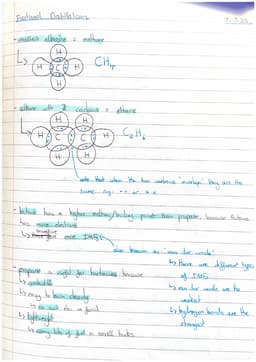 Fractional Distillations
7.3.22
- smallest alkane = methane
H
H C H
H
CH4
- alkane with 2 carbons = ethane
H H
H C C H
H H
C2H6
note that when the two carbons 'overlap' they are the
same eg. •• or x x
- butane has a higher melting/boiling point than propane because butane
has more electrons
more IMFs
also known as 'van der waals'
- propane is useful for barbecues because
↳ there are different types
of IMFs
↳ easy to burn cleanly
↳ van der waals are the
weakest
↳ no soot
↳ lightweight
↳ hydrogen bonds are the
strongest
↳ carry lots of fuel in small tanks